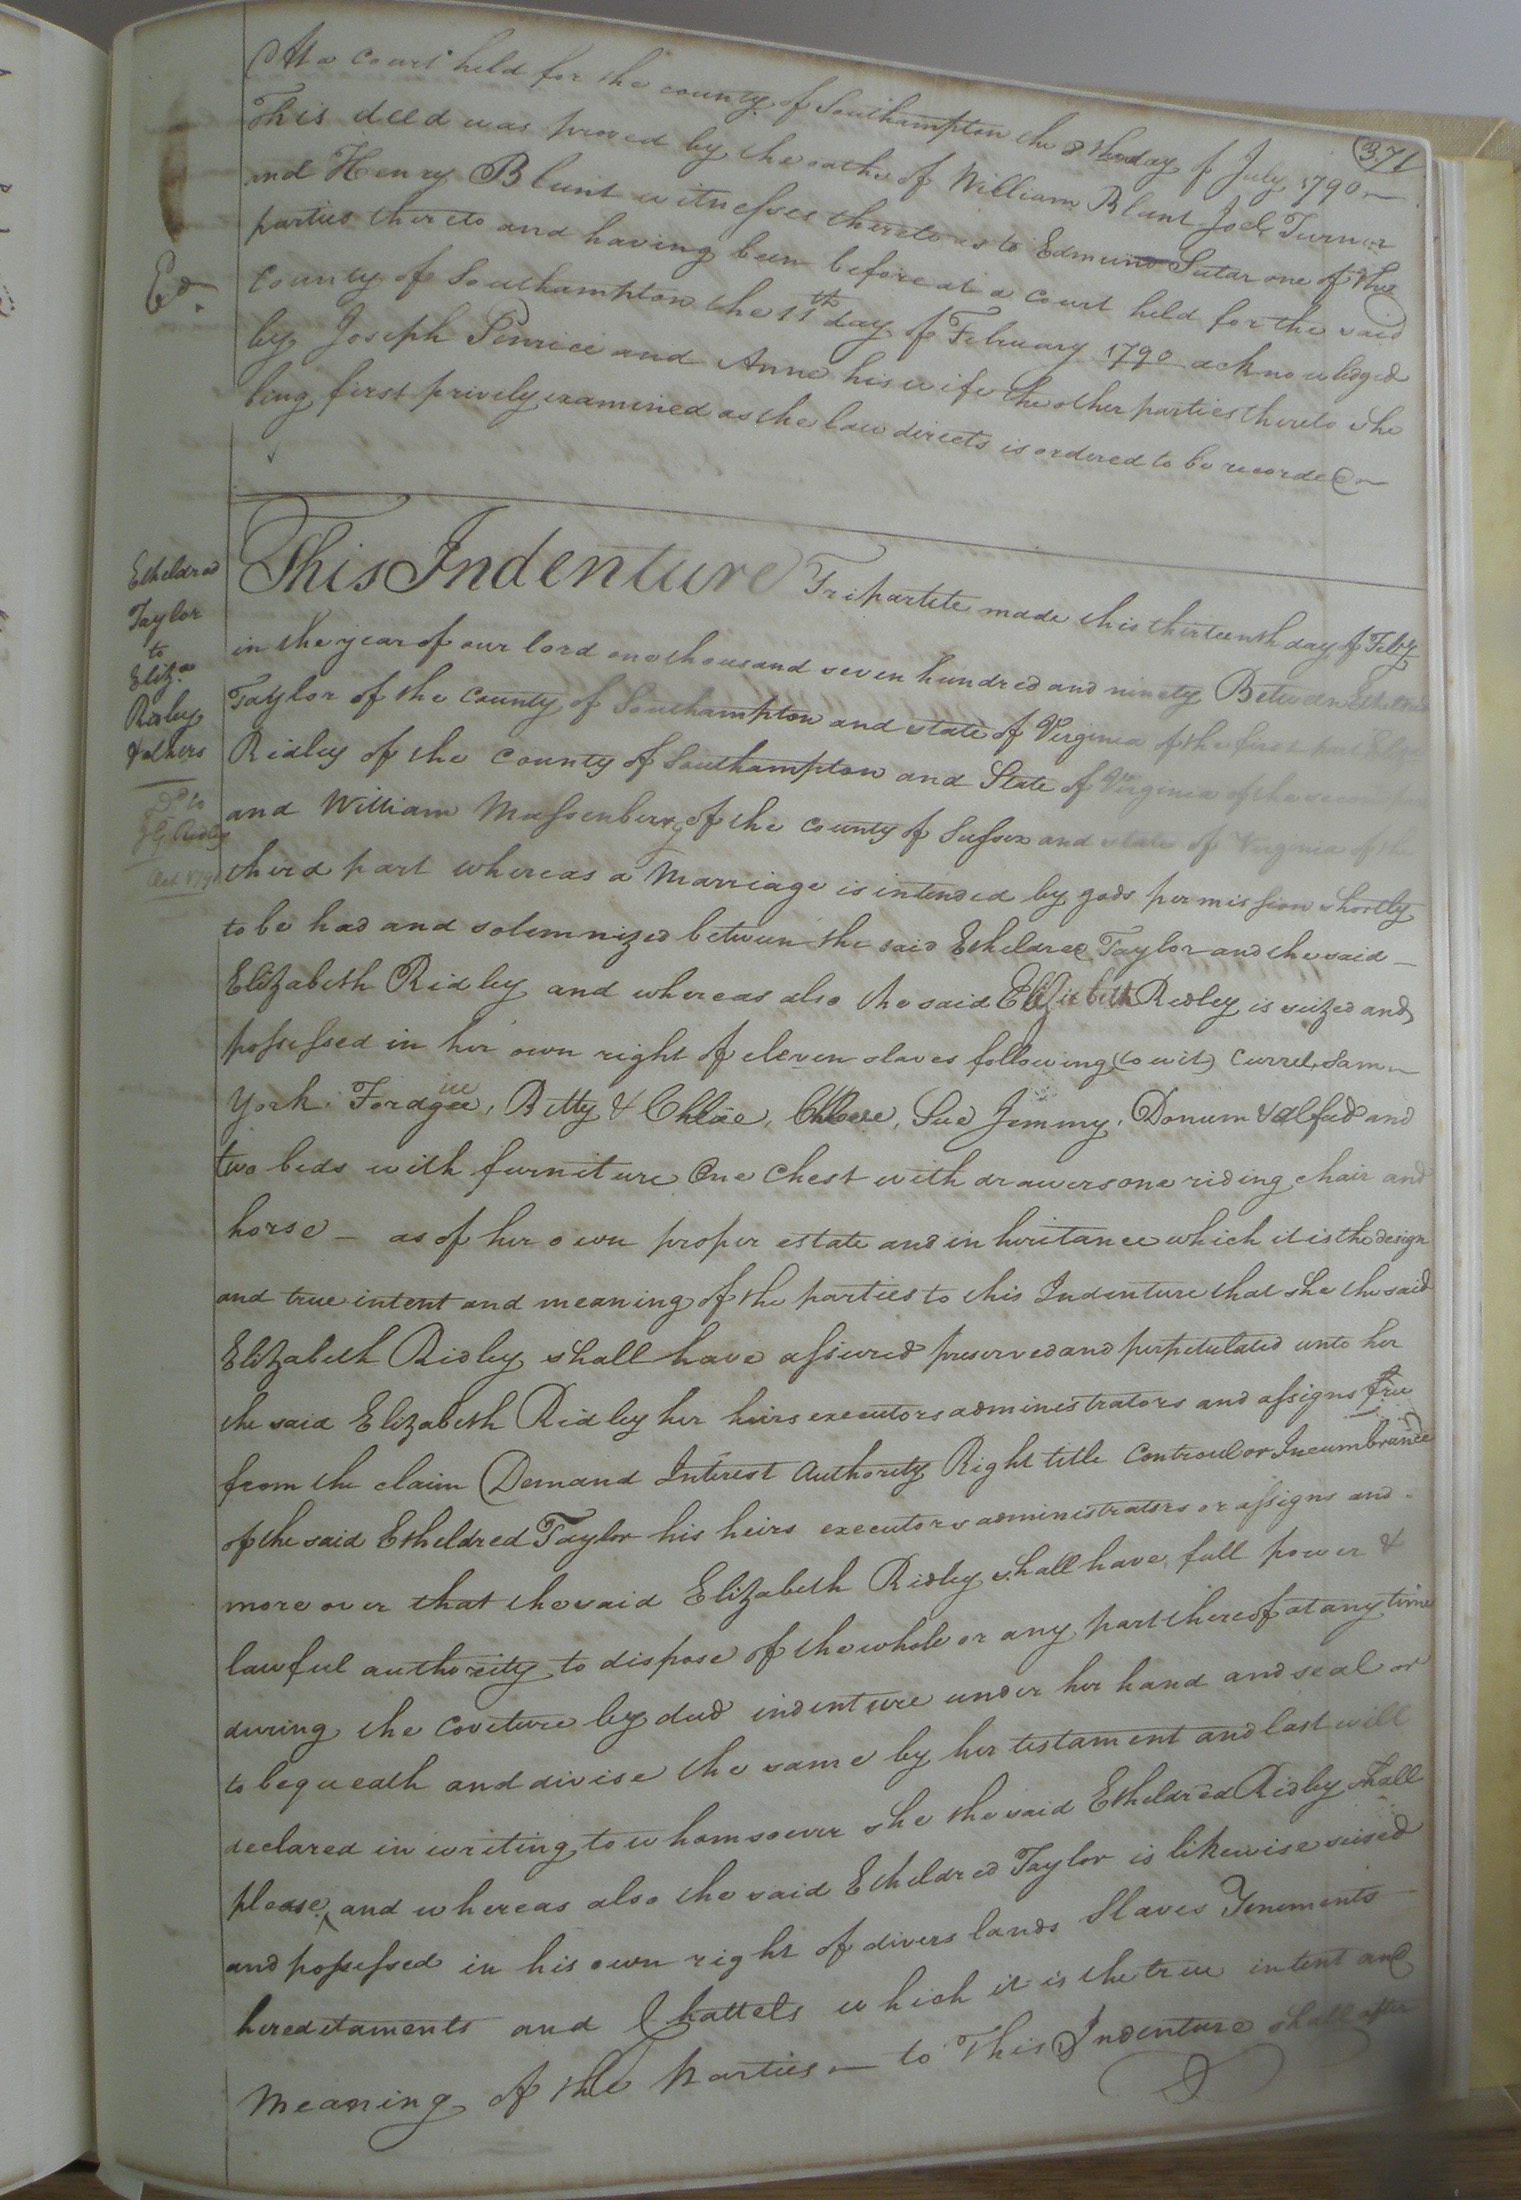 371
At a Court held for the county of Southampton the 8th day of July 1790
This deed was proved by the oaths of William Blunt Joel Turner
and Henry Blunt witnesses thereto as to Edmund Sutar one of the
parties thereto and having been before at a Court held for the said
County of Southampton the 11th day of February 1790 acknowledged
by Joseph Penrice and Anne his wife the other parties thereto she
being first privily examined as the law directs is ordered to be recorded
Ed.
Etheldred
Taylor
to
Eliza
Ridley
& others
Do to
Ridley
Oct
This Indenture Tripartite made this thirteenth day of Feby
in the year of our lord one thousand seven hundred and ninety Between Etheldred
Taylor of the County of Southampton and state of Virginia of the first part Eliza
Ridley of the County of Southampton and State of Virginia of the second part
and William Massenberg of the County of Sussex and state of Virginia of the
third part whereas a Marriage is intended by gods permission shortly
to be had and solemnized between the said Etheldred Taylor and the said
Elizabeth Ridley and whereas also the said Elizabeth Ridley is seized and
possessed in her own right of eleven slaves following (to wit) Currel, Sam
York, Bitty & Chloe, Sue Jemmy, Donum & alfud and
two beds with furniture One Chest with drawers one riding chair and
horse — as of her own proper estate and inheritance which it is the design
and true intent and meaning of the parties to this Indenture that she the said
Elizabeth Ridley shall have assured preserved and perpetulated unto her
the said Elizabeth Ridley her heirs executors administrators and assigns free
from the claim Demand Interest Authority Right title Controul or Incumbrance
of the said Etheldred Taylor his heirs executors administrators or assigns and
more over that the said Elizabeth Ridley shall have full power &
lawful authority to dispose of the whole or any part thereof at any time
during the Coveture by deed indenture under her hand and seal or
to bequeath and divise the same by her testament and last will
declared in writing to whomsoever she the said Etheldred Ridley shall
please, and whereas also the said Etheldred Taylor is likewise seised
and possessed in his own right of divers lands Slaves Tenements
hereditaments and Chattels which it is the true intent and
Meaning of the Parties — to This Indenture shall after